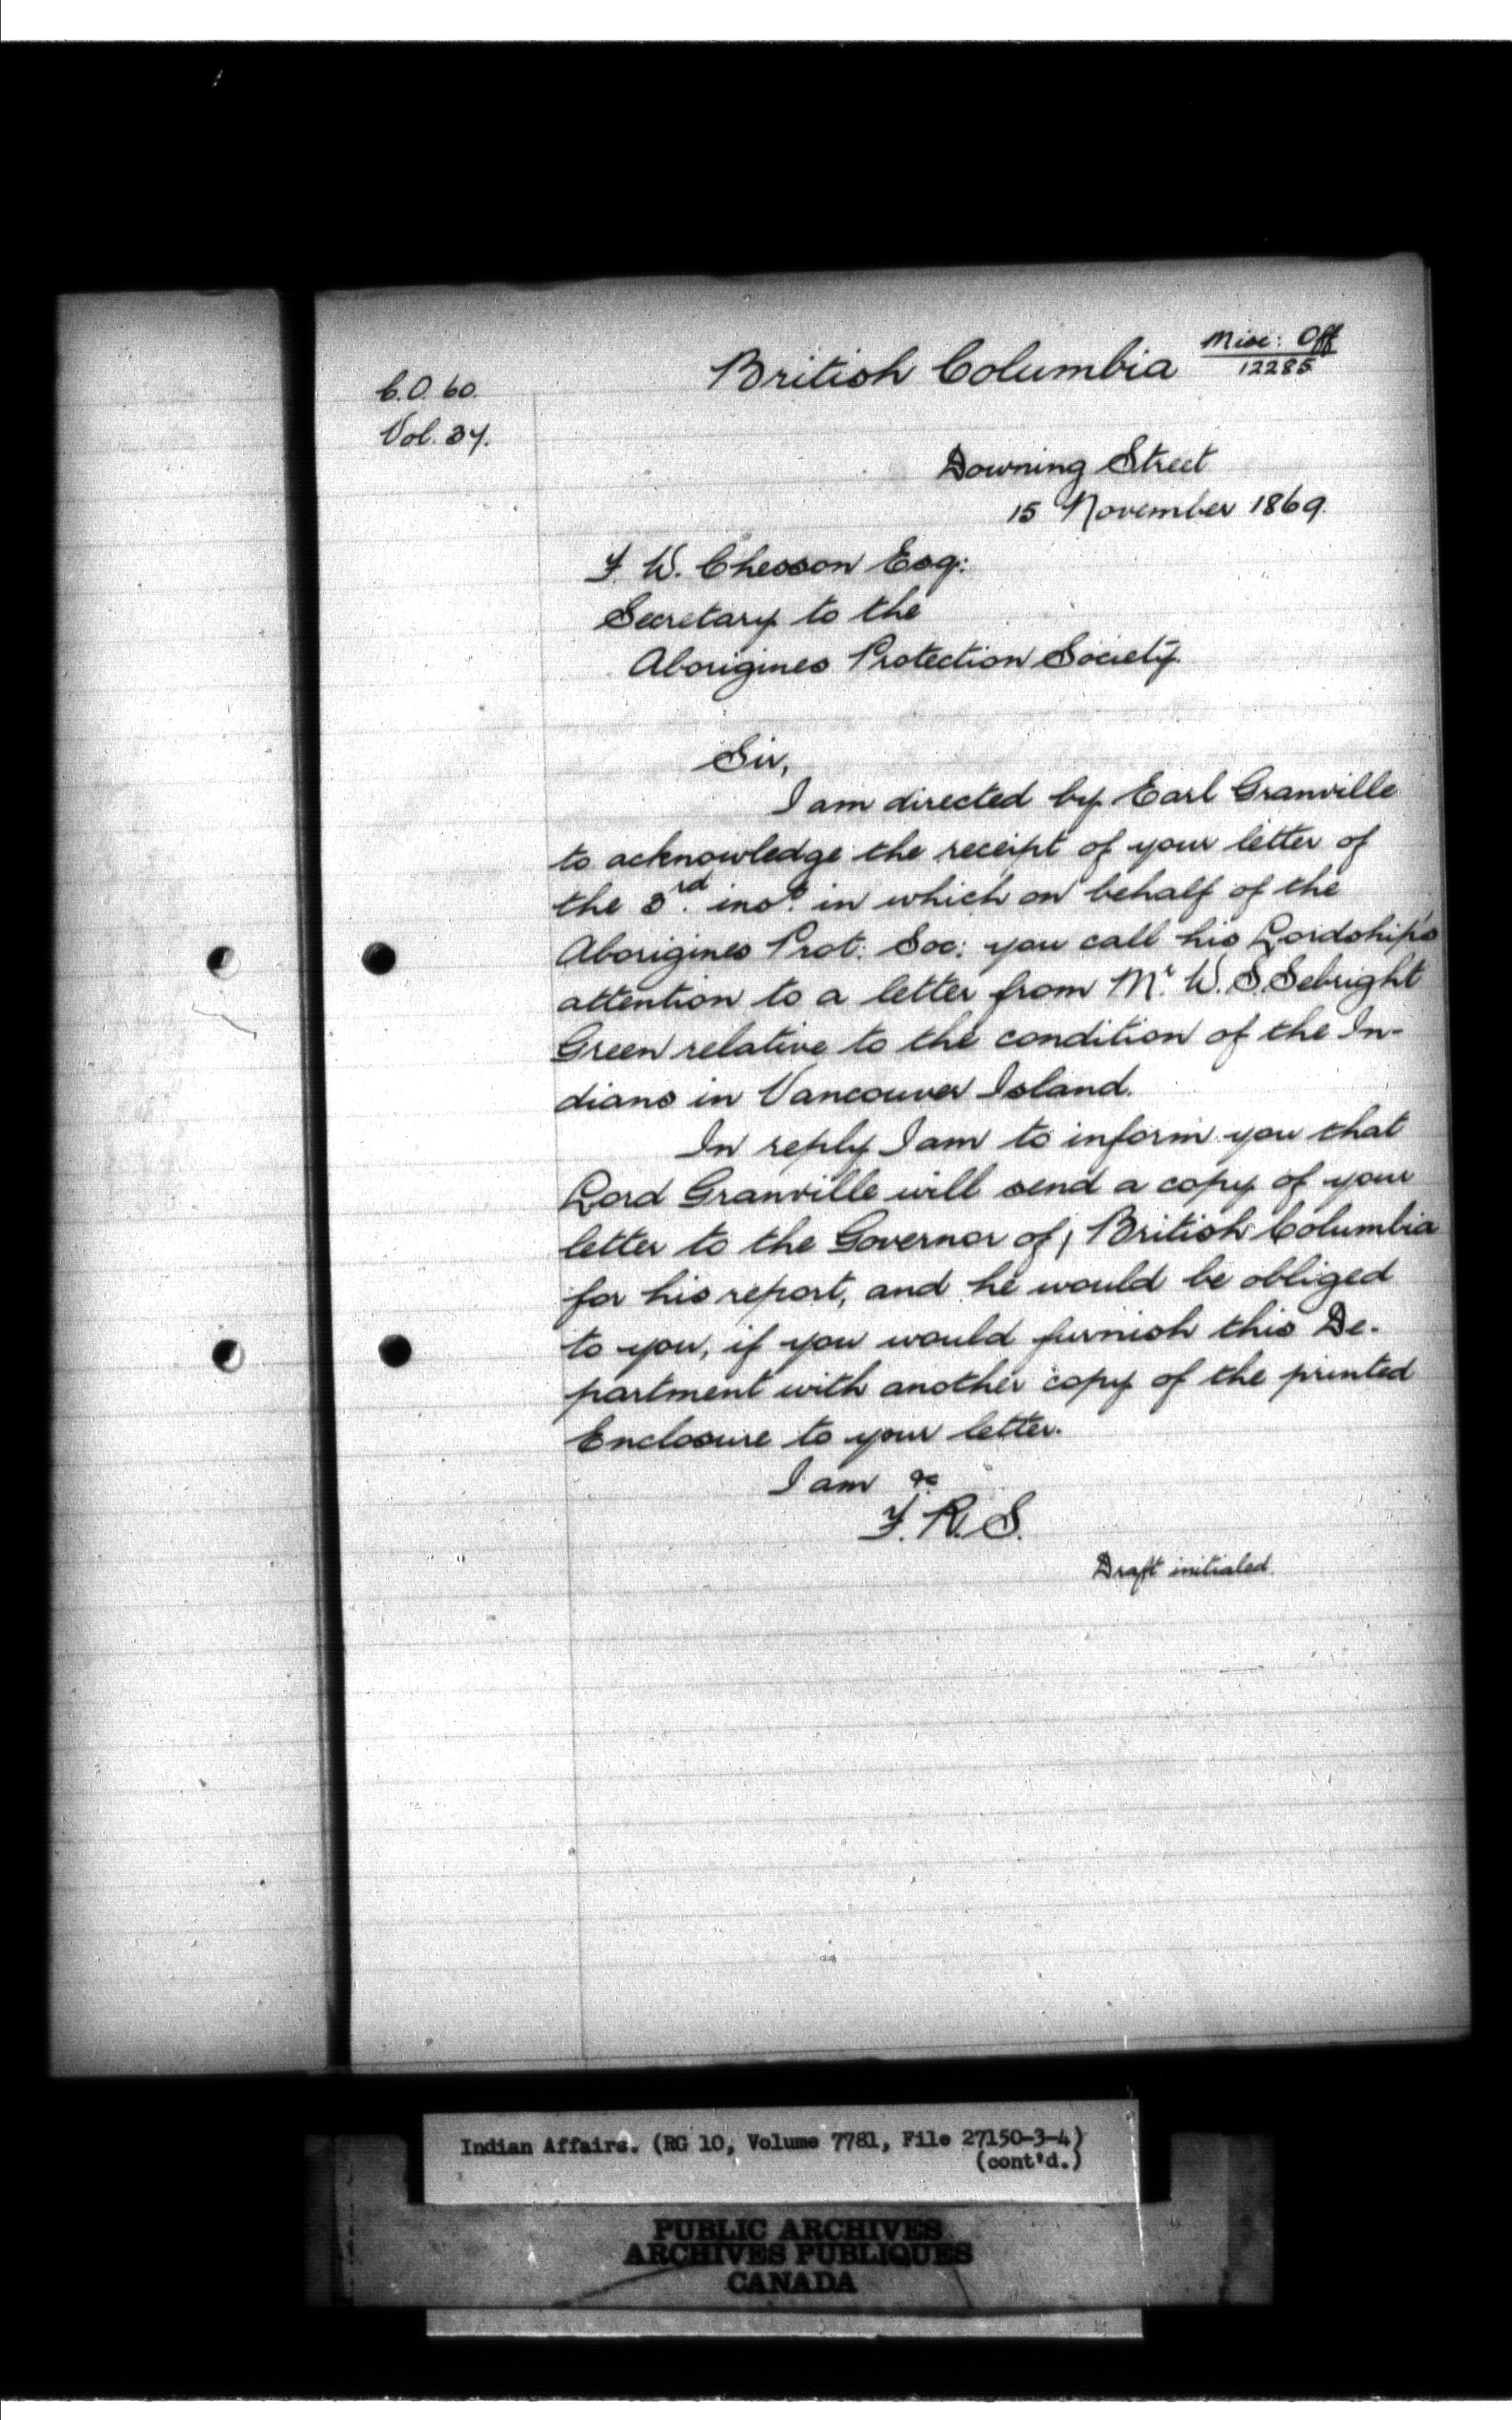 C.O. 60.
Vol. 37.
British Columbia
Misc: Off
12285
Downing Street
15 November 1869.
F. W. Chesson Esq:
Secretary to the
Aborigines Protection Society.
Sir,
I am directed by Earl Granville
to acknowledge the receipt of your letter of
the 3rd. inst. in which on behalf of the
Aborigines Prot: Soc: you call his Lordship's
attention to a letter from Mr. W. S. Sebright
Green relative to the condition of the In-
dians in Vancouver Island.
In reply I am to inform you that
Lord Granville will send a copy of your
letter to the Governor of British Columbia
for his report, and he would be obliged
to you, if you would furnish this De-
partment with another copy of the printed
Enclosure to your letter.
I am &c
F. R. S.
Draft initialed.
Indian Affairs. (RG 10, Volume 7781, File 27150-3-4)
(cont'd.)
PUBLIC ARCHIVES
ARCHIVES PUBLIQUES
CANADA